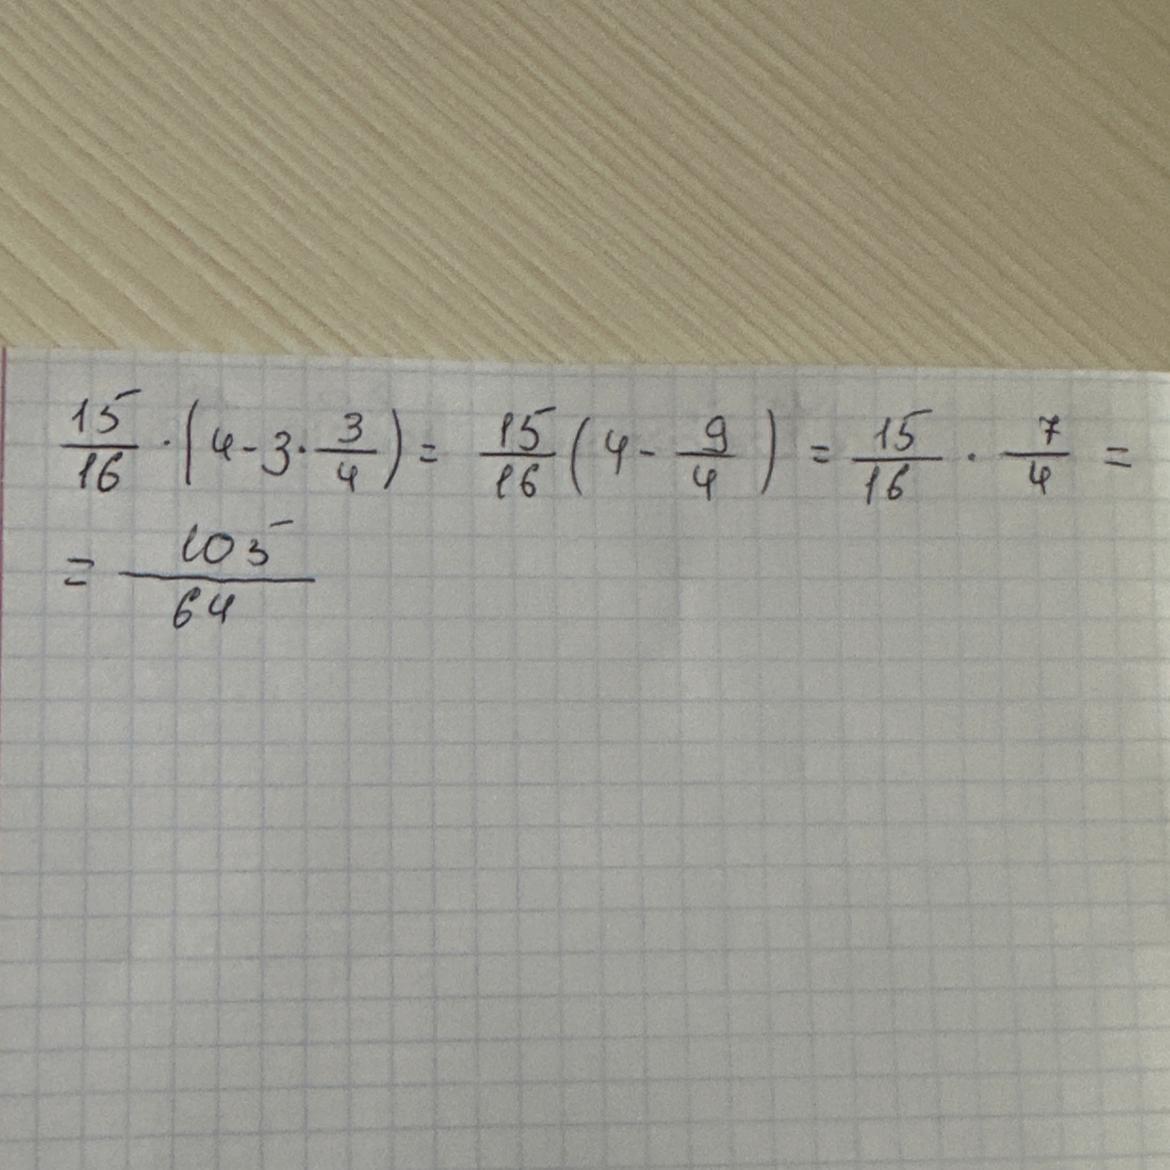 15/16 · (4 - 3 · 3/4) = 15/16 (4 - 9/4) = 15/16 · 7/4 =
= 105/64